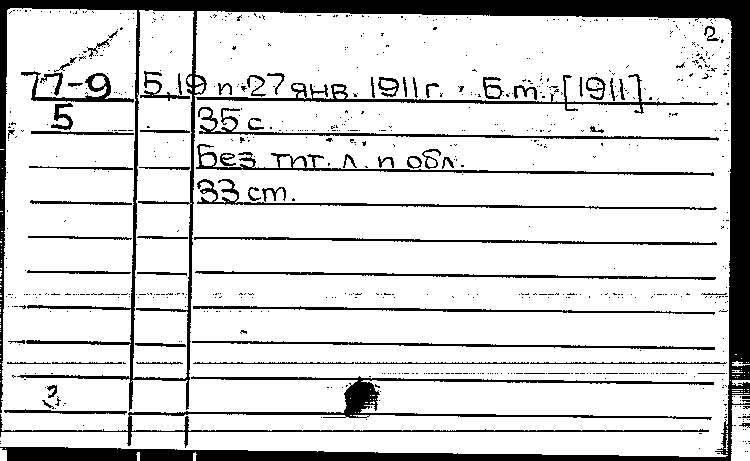 2.
77-9 5, 19 и 27 янв. 1911 г. Б.м., [1911].
5 35 с.
Без тит. л. и обл.
33 см.
3